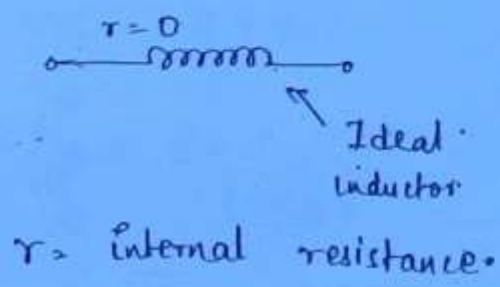 r = 0
Ideal
inductor
r = internal resistance.